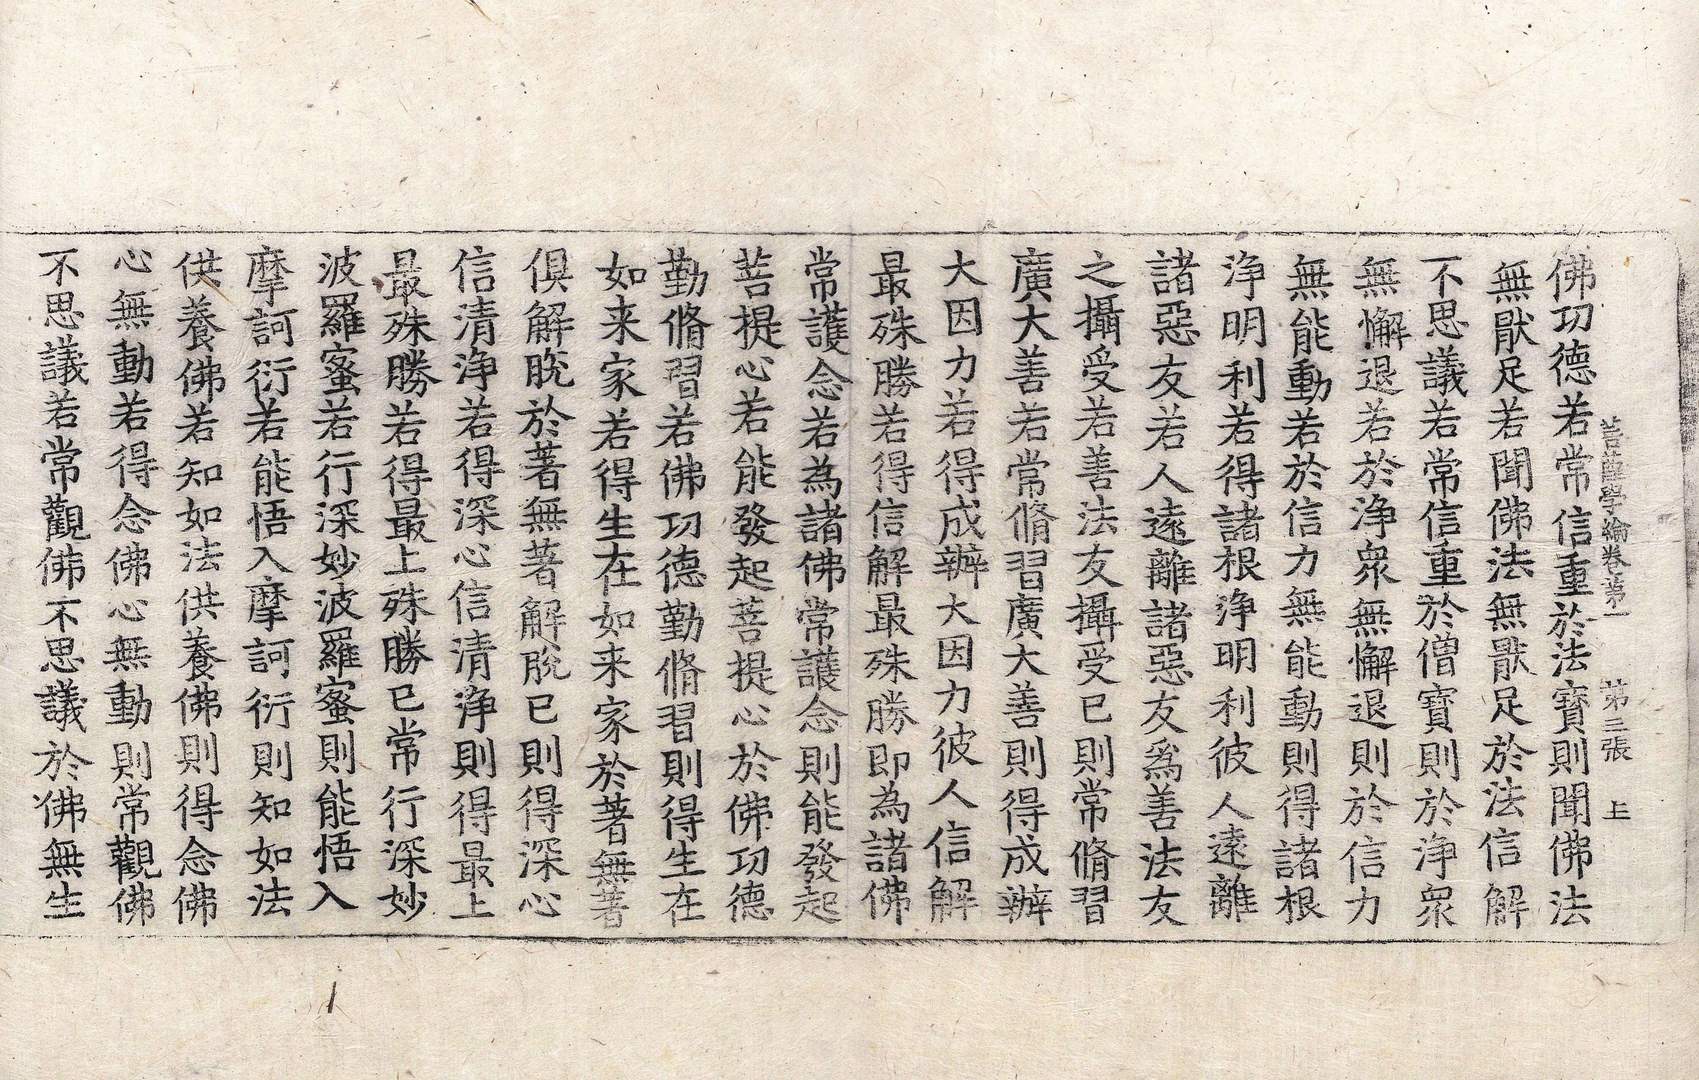 菩薩學論卷第一　第三張　上
佛功德若常信重於法寶則聞佛法
無厭足若聞佛法無厭足於法信解
不思議若常信重於僧寶則於淨眾
無懈退若於淨眾無懈退則於信力
無能動若於信力無能動則得諸根
淨明利若得諸根淨明利彼人遠離
諸惡友若人遠離諸惡友為善法友
之攝受若善法友攝受已則常脩習
廣大善若常脩習廣大善則得成辦
大因力若得成辦大因力彼人信解
最殊勝若得信解最殊勝即為諸佛
常護念若為諸佛常護念則能發起
菩提心若能發起菩提心於佛功德
勤脩習若佛功德勤脩習則得生在
如来家若得生在如来家於著無著
俱解脫於著無著解脫已則得深心
信清淨若得深心信清淨則得最上
最殊勝若得最上殊勝已常行深妙
波羅蜜若行深妙波羅蜜則能悟入
摩訶衍若能悟入摩訶衍則知如法
供養佛若知如法供養佛則得念佛
心無動若得念佛心無動則常觀佛
不思議若常觀佛不思議於佛無生